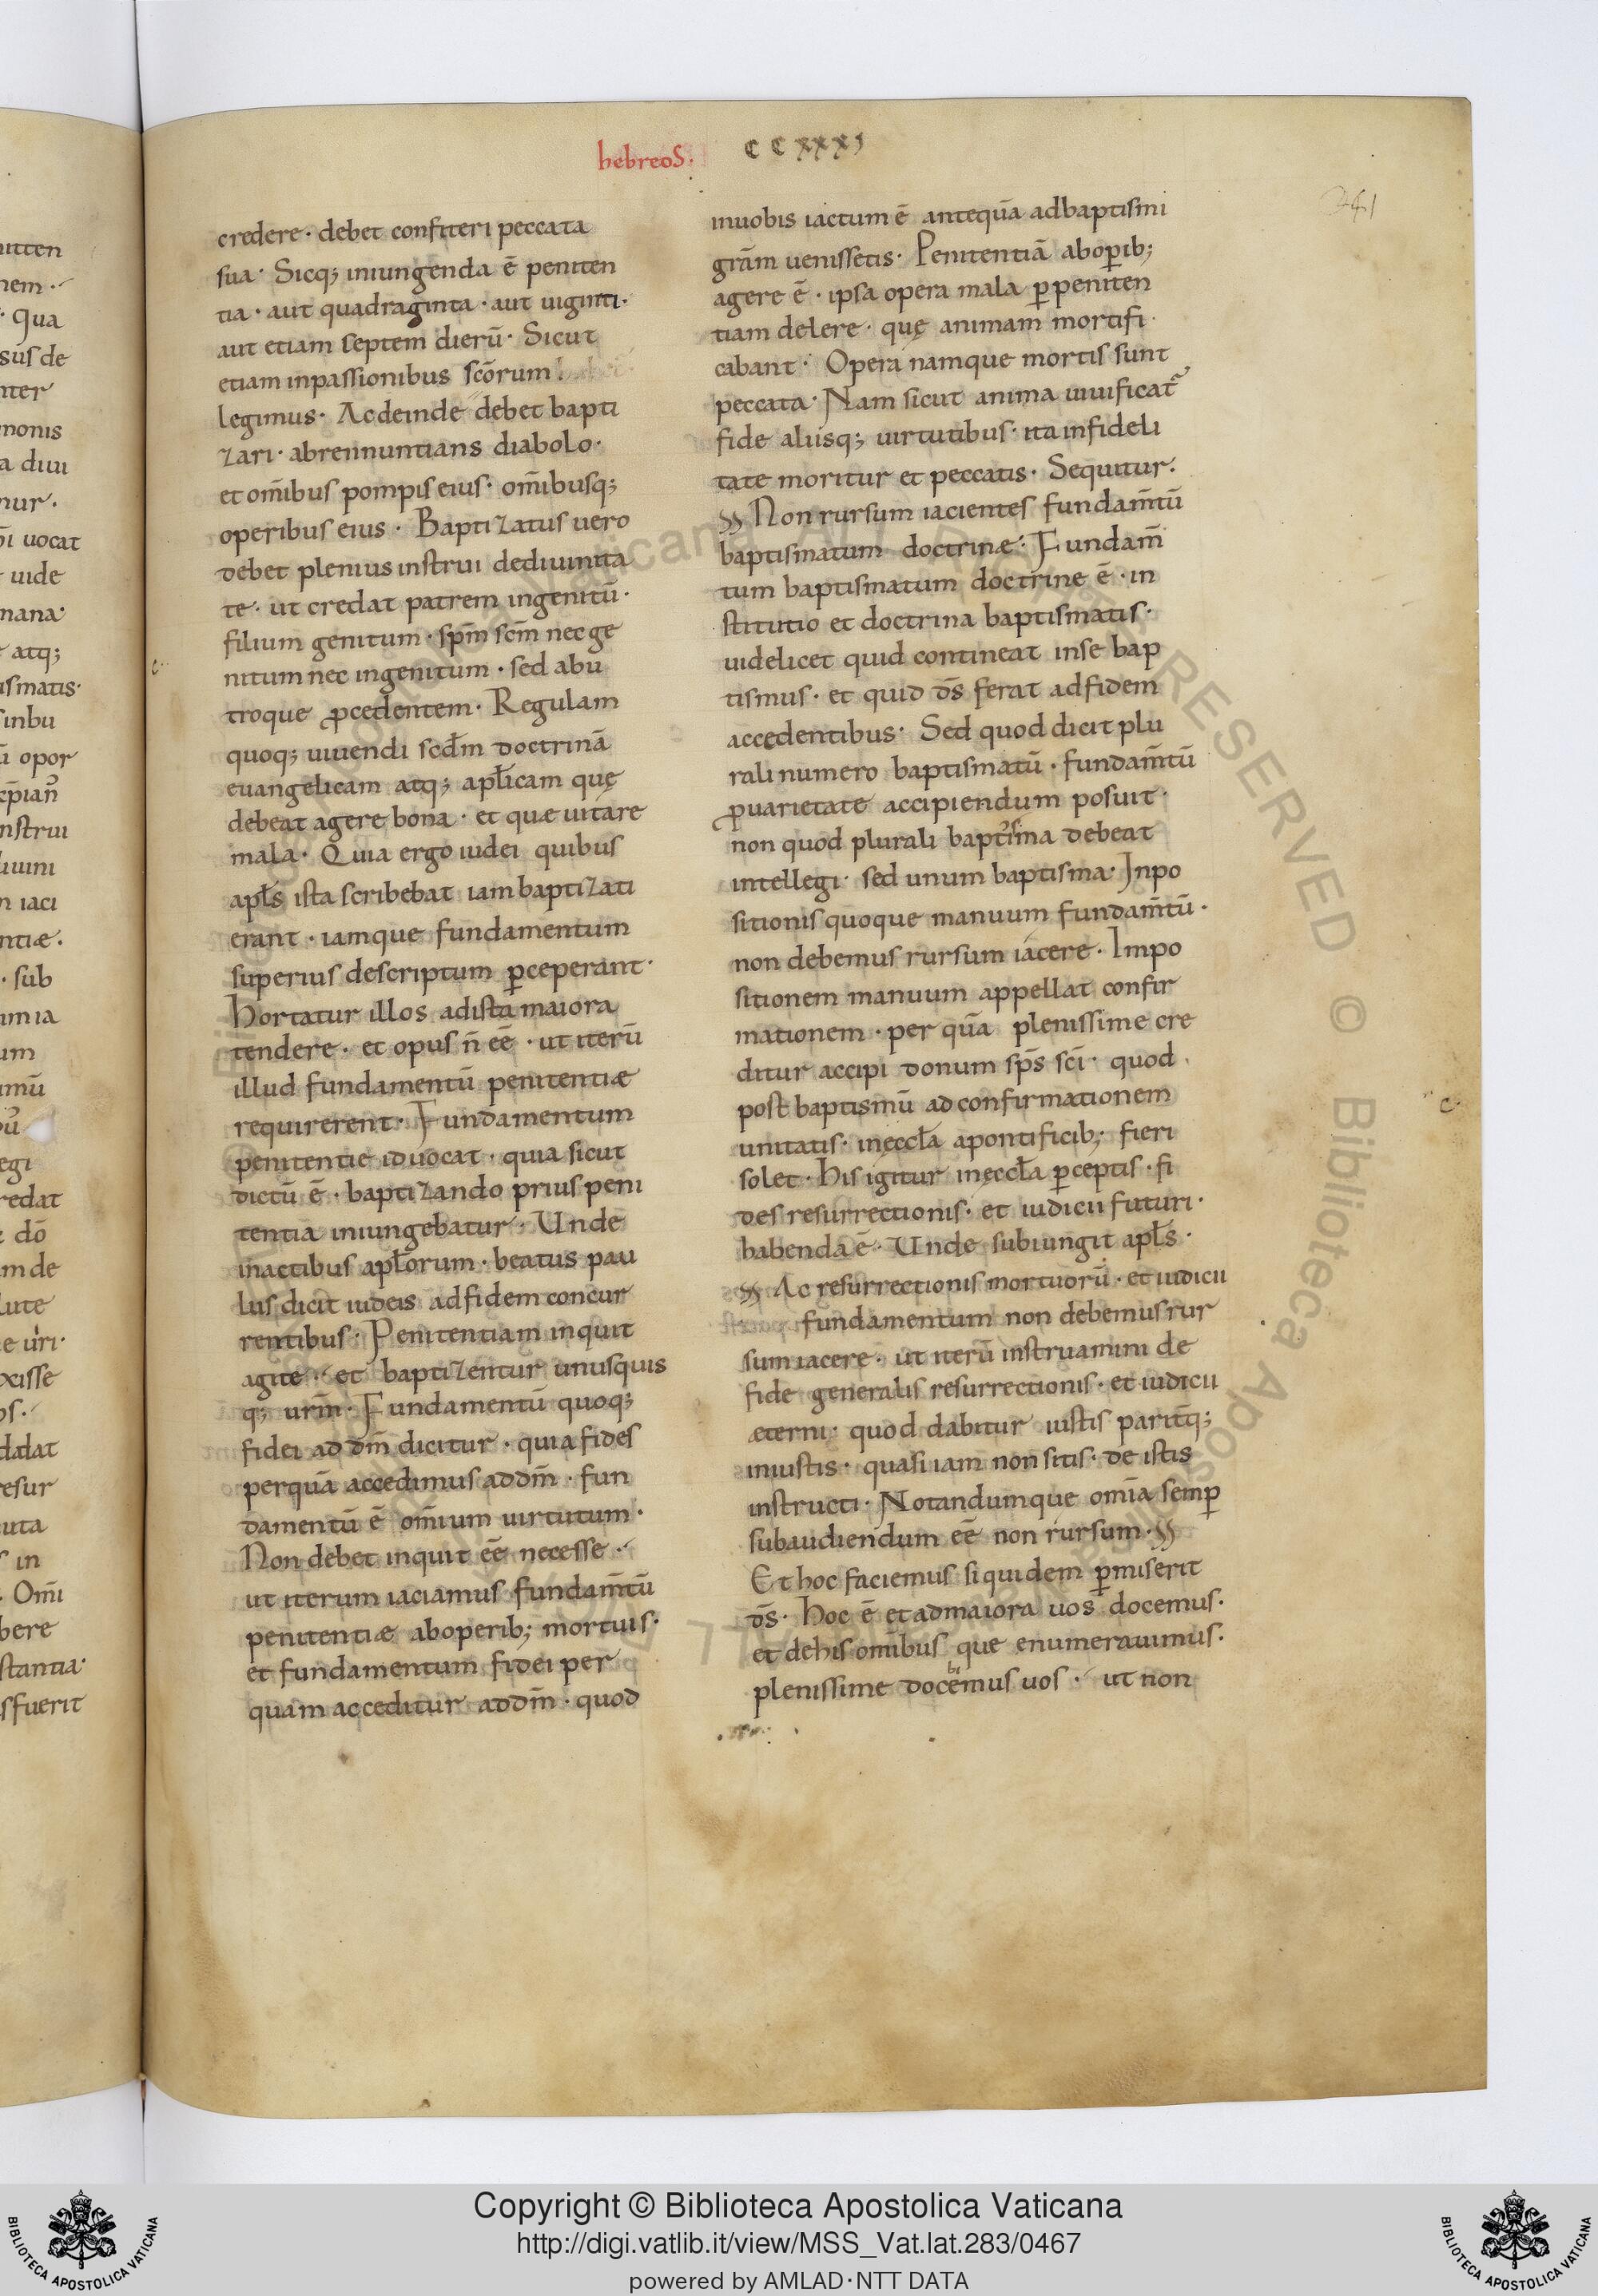 hebreoS. CCXXXI
241
credere· debet confiteri peccata
sua· Sicq; iniungenda ē peniten
tia· aut quadraginta· aut uiginti·
aut etiam septem dierū· Sicut
etiam inpassionibus scōrum
legimus· Acdeinde debet bapti
zari· abrennuntians diabolo·
et om̄ibus pompis eius· om̄ibusq;
operibus eius· Baptizatus uero
debet plenius instrui dediuinita
te· ut credat patrem ingenitū·
filium genitum· sp̄m sc̄m nec ge
nitum nec ingenitum· sed abu
troque ꝓcedentem· Regulam
quoq; uiuendi scđm doctrinā
euangelicam atq; apłicam quę
debeat agere bona· et quæ uitare
mala· Quia ergo iudei quibus
apłs ista scribebat iam baptizati
erant· iamque fundamentum
superius descriptum ꝑceperant·
Hortatur illos adista maiora
tendere· et opus n̄ eē· ut iterū
illud fundamentū penitentiæ
requirerent· Fundamentum
penitentie iduocat· quia sicut
dictū ē· baptizando prius peni
tentia iniungebatur· Unde
inactibus apłorum· beatus pau
lus dicit iudeis adfidem concur
rentibus· Penitentiam inquit
agite· et baptizentur unusquis
q; ur̄m· Fundamentū quoq;
fidei ad dm̄ dicitur· quia fides
perquā accedimus addm̄· fun
damentū ē om̄ium uirtutum·
Non debet inquit eē necesse·
ut iterum iaciamus fundam̄tū
penitentiæ aboperib; mortuis·
et fundamentum fidei per
quam acceditur addm̄· quod
inuobis iactum ē antequā adbaptismi
grām uenissetis· Penitentiā aboꝑib;
agere ē· ipsa opera mala ꝑpeniten
tiam delere· quę animam mortifi
cabant· Opera namque mortis sunt
peccata· Nam sicut anima uiuificat᷑
fide aliisq; uirtutibus· ita infideli
tate moritur et peccatis· Sequitur·
Non rursum iacientes fundam̄tū
baptismatum doctrinæ· Fundam̄
tum baptismatum doctrine ē· in
stitutio et doctrina baptismatis·
uidelicet quid contineat inse bap
tismus· et quid d̄s ferat adfidem
accedentibus· Sed quod dicit plu
rali numero baptismatū· fundam̄tū
ꝓuarietate accipiendum posuit·
non quod plurali baptisma debeat
intellegi· sed unum baptisma· Inpo
sitionis quoque manuum fundam̄tū·
non debemus rursum iacere· Impo
sitionem manuum appellat confir
mationem· per quā plenissime cre
ditur accipi donum sp̄s sc̄i· quod
post baptismū adconfirmationem
unitatis· inęccła apontificib; fieri
solet· His igitur inęccła ꝑceptis· fi
des resurrectionis· et iudicii futuri·
habenda ē· Unde subiungit apłs·
Ac resurrectionis mortuorū· et iudicii
fundamentum non debemus rur
sum iacere· ut iterū instruamini de
fide generalis resurrectionis· et iudicii
æterni· quod dabitur iustis parit̄q;
iniustis· quasi iam non sitis· de istis
instructi· Notandumque om̄ia semꝑ
subaudiendum eē non rursum·
Et hoc faciemus siquidem ꝑmiserit
d̄s· Hoc ē et admaiora uos docemus·
et dehis om̄ibus que enumerauimus·
plenissime docebimus uos· ut non
uitten
nem·
qua
sus de
nter
monis
a diui
nur·
uocat
uide
mana·
atq;
ismatis·
opor
nstrui
iuini
n iaci
ntiæ·
· sub
um
egi
redat
dō
m de
lute
xisse
dalat
resur
uta
in
Om̄i
bere
stantia·
sfuerit
Biblioteca Apostolica Vaticana ALL RIGHTS RESERVED © Biblioteca Apostolica Vaticana
Copyright © Biblioteca Apostolica Vaticana
http://digi.vatlib.it/view/MSS_Vat.lat.283/0467
powered by AMLAD·NTT DATA
BIBLIOTECA APOSTOLICA VATICANA
BIBLIOTECA APOSTOLICA VATICANA